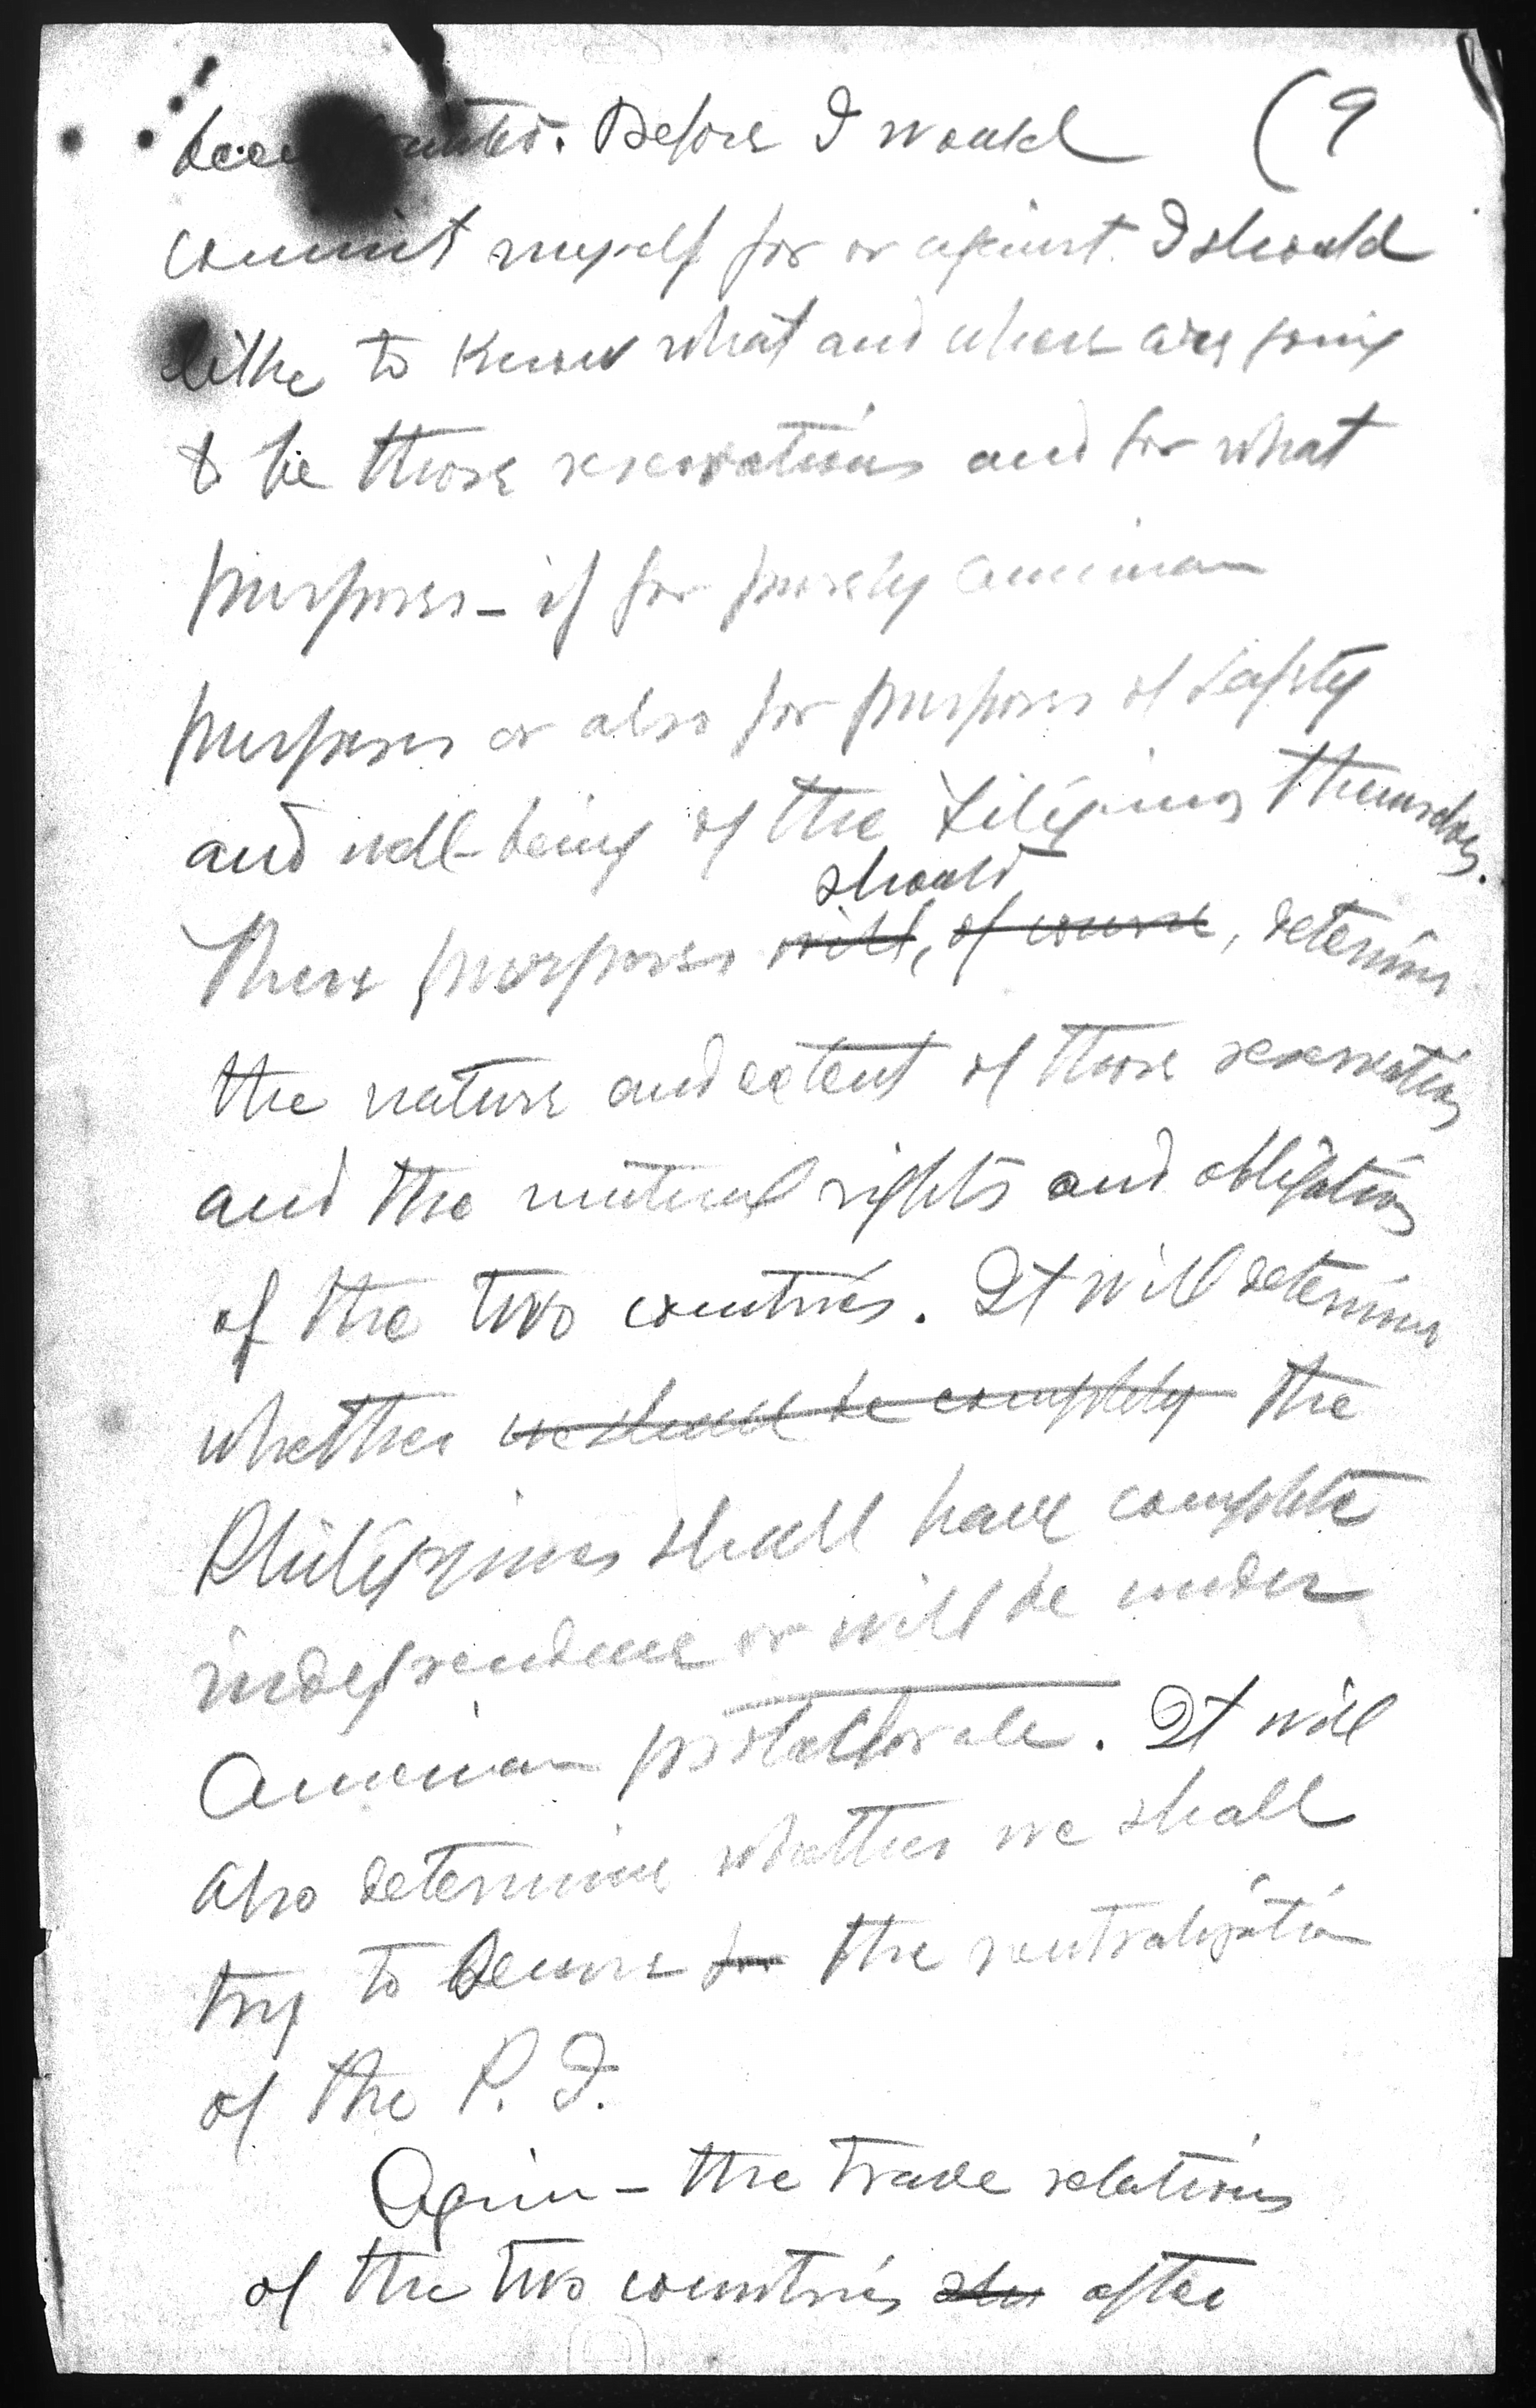 been granted. Before I would (9
commit myself for or against. I should
like to know what and where are going
to be those reservations and for what
purposes – if for purely American
purposes or also for purposes of safety
and well-being of the Filipinos themselves.
should
These purposes will, of course, determine
the nature and extent of those reservations
and the mutual rights and obligations
of the two countries. It will determine
whether we should be completely the
Philippines shall have complete
independence or will be under
American protectorate. It will
also determine whether we shall
try to secure for the neutralization
of the P. I.
Again – the trade relations
of the two countries after